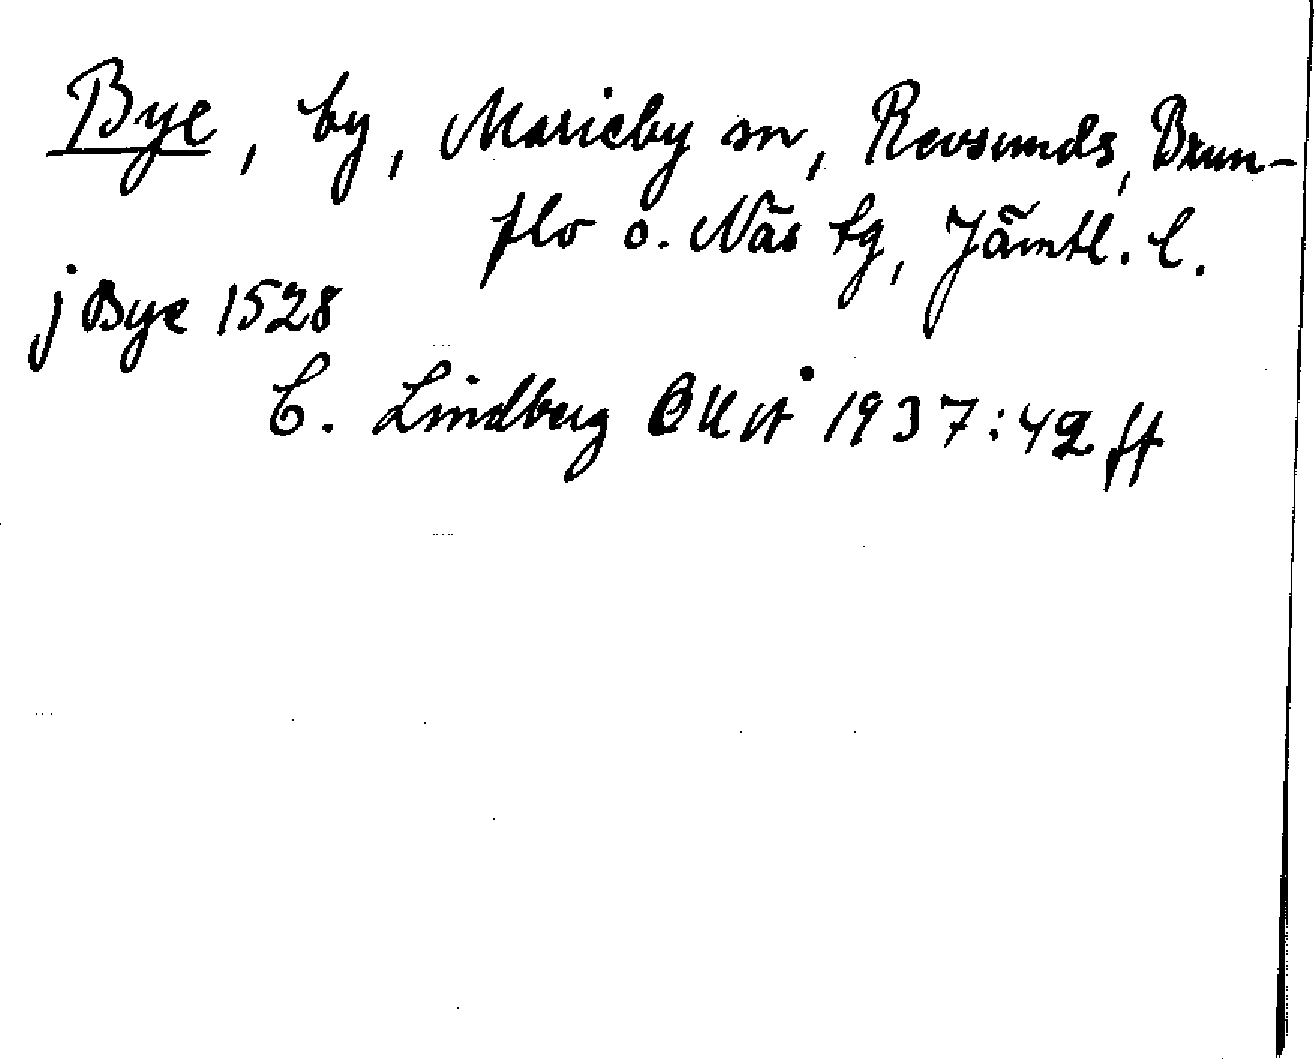 Bye, by, Marieby sn, Revsunds, Brun-
flo o. Näs tg, Jämtl. l.
j Bye 1528
C. Lindberg OUÅ 1937:42 ff